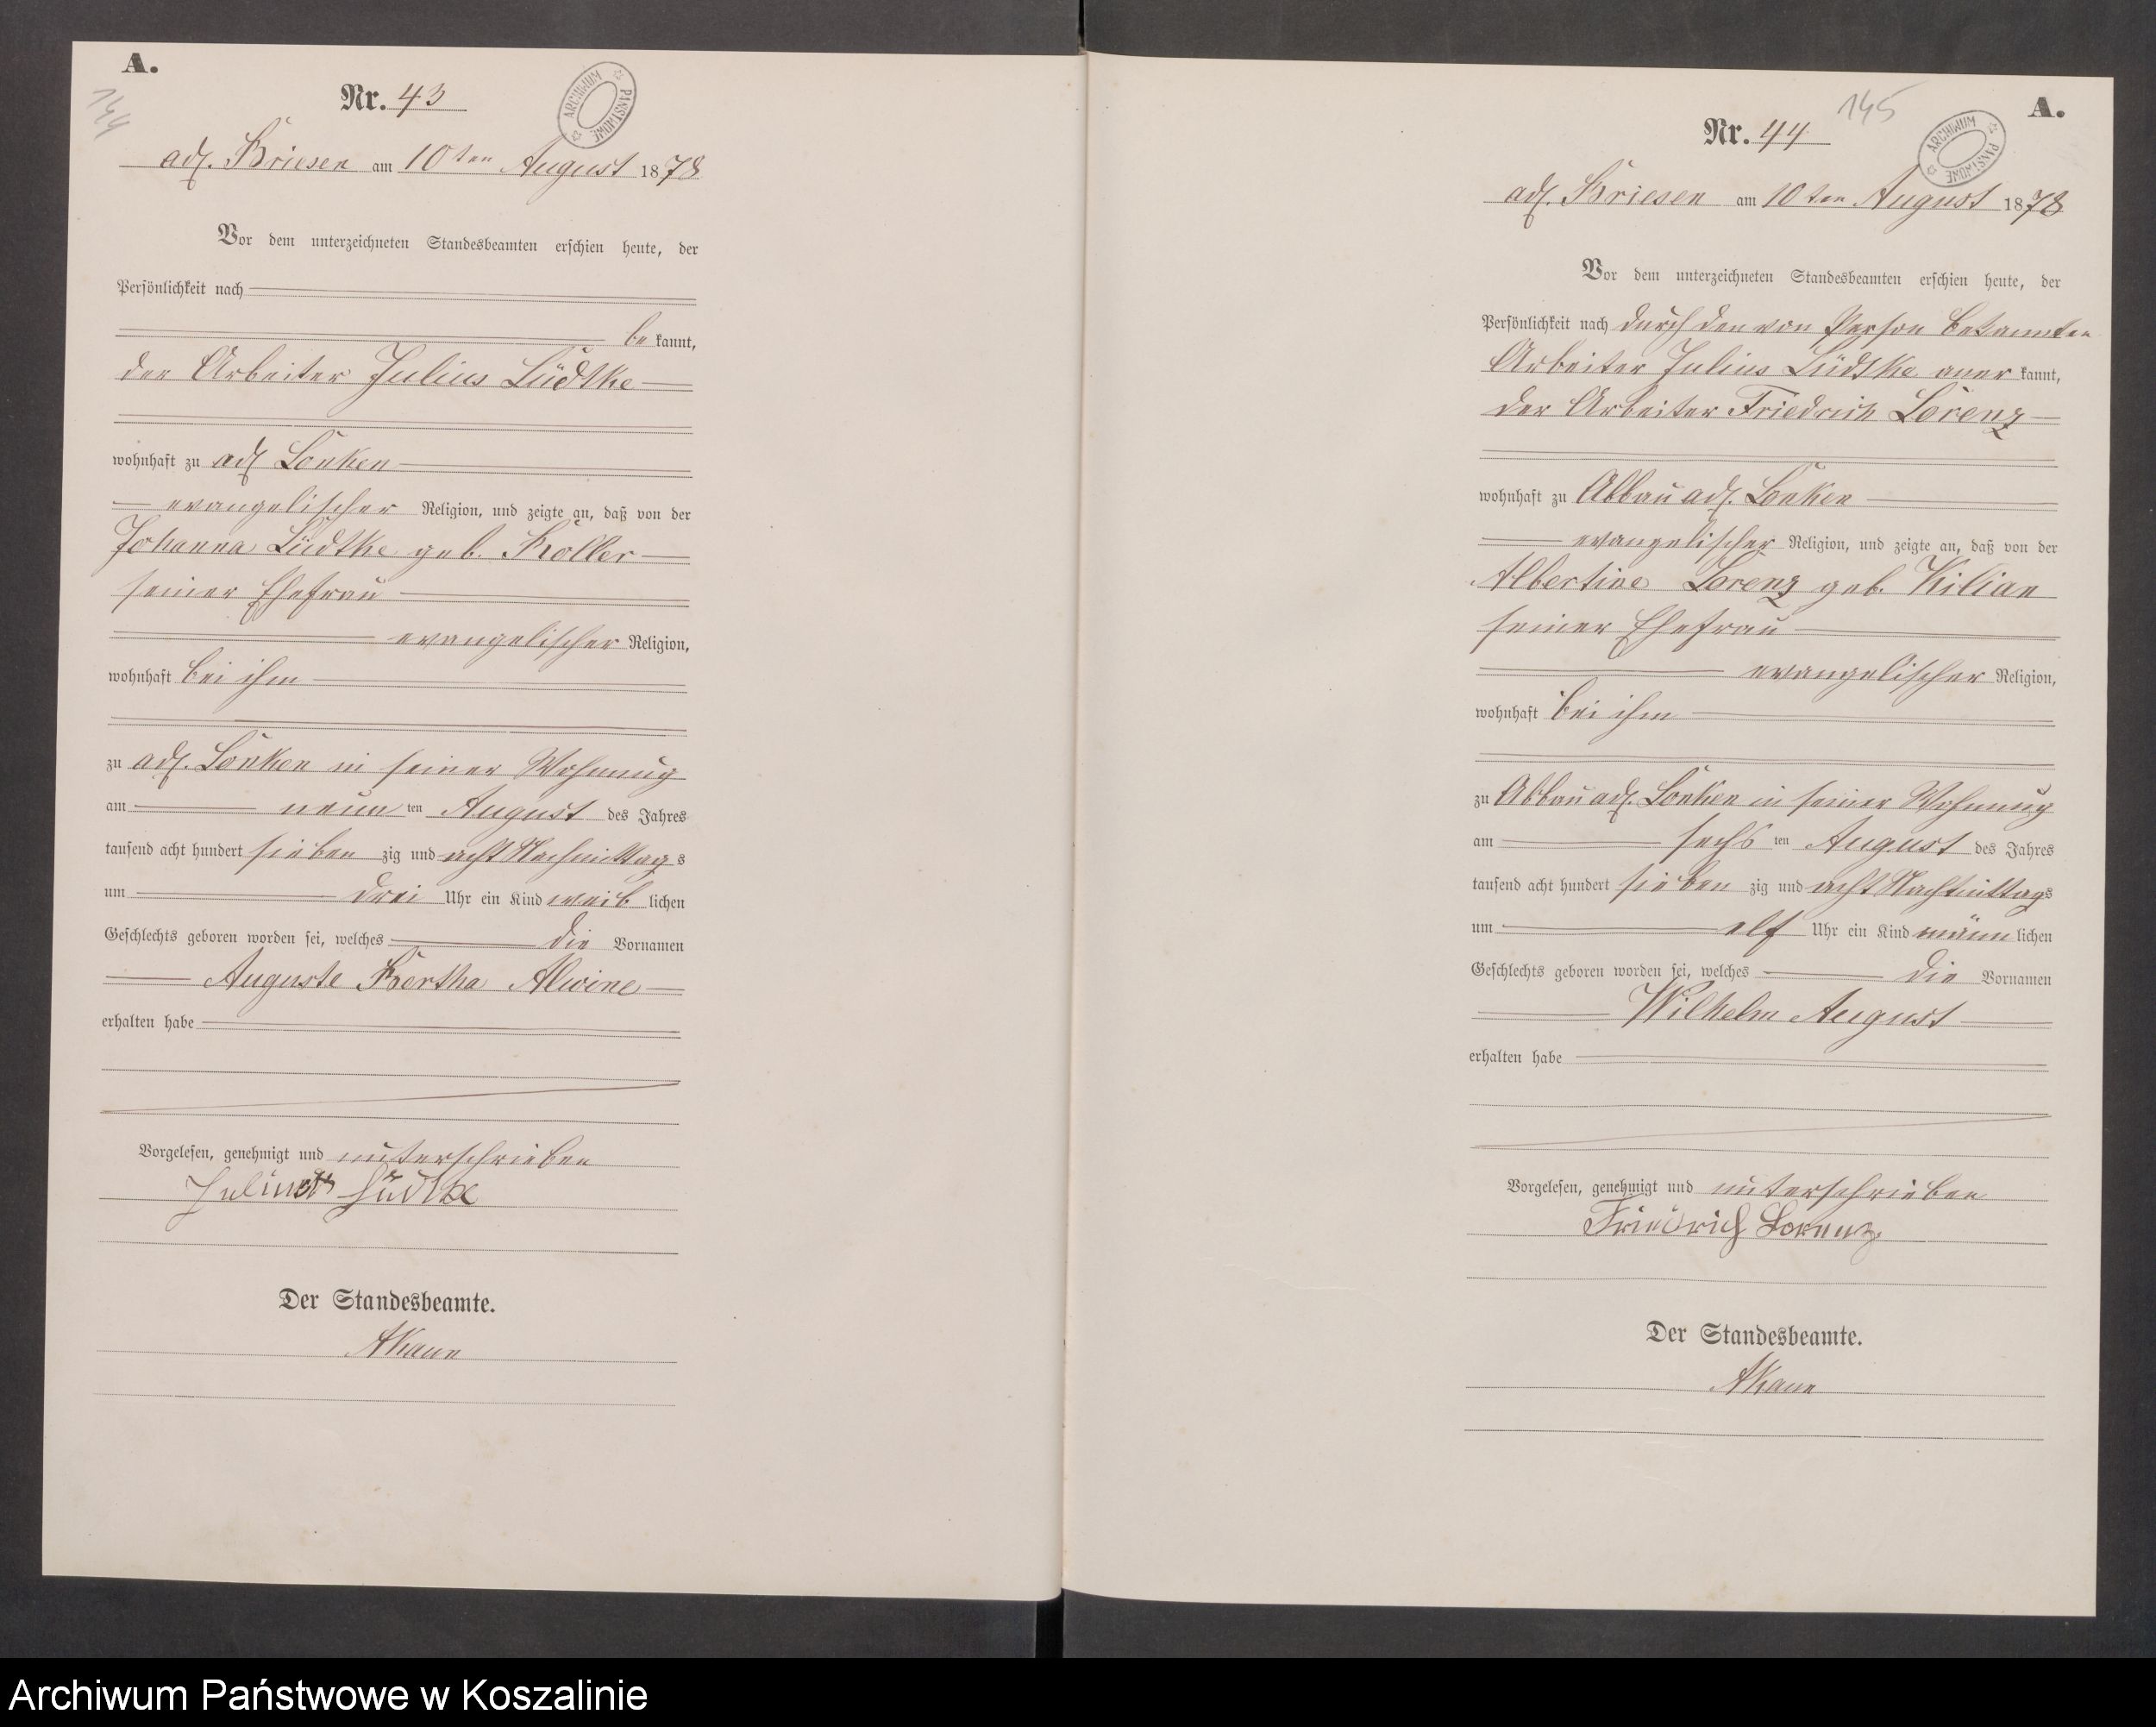 A.
144
Nr. 43
ARCHIWUM PAŃSTWOWE
adl. Briesen am 10ten August 1878
Vor dem unterzeichneten Standesbeamten erschien heute, der
Persönlichkeit nach
be kannt,
der Arbeiter Julius Lüdtke
wohnhaft zu adl Lonken
evangelischer Religion, und zeigte an, daß von der
Johanna Lüdtke geb. Koller
seiner Ehefrau
evangelischer Religion,
wohnhaft bei ihm
zu adl. Lonken in seiner Wohnung
am neun ten August des Jahres
tausend acht hundert sieben zig und acht Nachmittags
um drei Uhr ein Kind weib lichen
Geschlechts geboren worden sei, welches die Vornamen
Auguste Bertha Alwine
erhalten habe
Vorgelesen, genehmigt und unterschrieben
Julius Lüdtke
Der Standesbeamte.
145
A.
Nr. 44
ARCHIWUM PAŃSTWOWE
adl. Briesen am 10ten August 1878
Vor dem unterzeichneten Standesbeamten erschien heute, der
Persönlichkeit nach durch den von Person bekannten
Arbeiter Julius Lüdtke aner kannt,
der Arbeiter Friedrich Lorenz
wohnhaft zu Abbau adl. Lonken
evangelischer Religion, und zeigte an, daß von der
Albertine Lorenz geb. Kilian
seiner Ehefrau
evangelischer Religion,
wohnhaft bei ihm
zu Abbau adl. Lonken in seiner Wohnung
am sechs ten August des Jahres
tausend acht hundert sieben zig und acht Nachmittags
um elf Uhr ein Kind männ lichen
Geschlechts geboren worden sei, welches die Vornamen
Wilhelm August
erhalten habe
Vorgelesen, genehmigt und unterschrieben
Friedrich Lorenz
Der Standesbeamte.
Archiwum Państwowe w Koszalinie